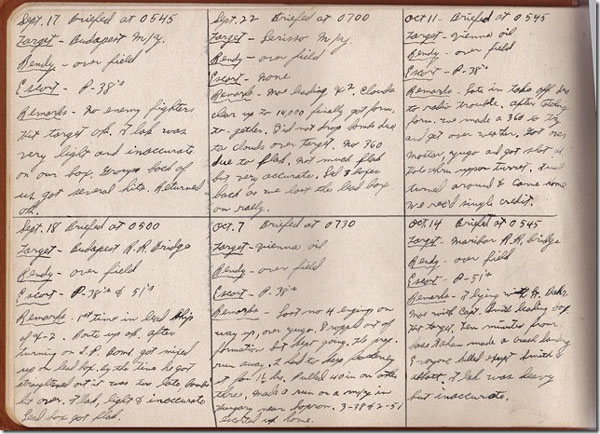 Sept. 17 Briefed at 0545
Target - Budapest M/y.
Rendy - over field
Escort - P-38's
Remarks - No enemy fighters
Hit target ok. Flak was
very light and inaccurate
on our box. Groups back of
us got several hits. Returned
ok.
Sept. 18 Briefed at 0500
Target - Budapest R.R Bridge
Rendy - over field
Escort - P-38's & 51's
Remarks - 1st time in lead ship
of
turning on I.P. Bomb. got mixed
up on lead box. by the time he got
straightened out it was too late bombs
hit over. Flak, light & inaccurate
Lead box got flak.
Sept. 22 Briefed at 0700
Target - M/y
Rendy - over field
Escort - None
Remarks - leading Clouds
clear up to 14,000 finally got form.
together. Did not drop bombs due
to clouds over target. No 360
due to flak. Not much flak
but very accurate. Led 3 boxes
back as we lost the lead box
on rally.
Oct. 7 Briefed at 0730
Target - Vienna oil
Rendy - over field
Escort - P-38's
Remarks - Lost no 4 engine on
way up, over yugo. Dropped out of
formation but kept going. It's prop.
run away. I had to keep
it for 1½ hrs. Pulled 40 in on other
three, made a run on a m/y in
Hungary near Sopron. 3-38's & 2-51
escorted us home.
Oct 11 - Briefed at 0545
Target - Vienna oil
Rendy - over field
Escort - P-38's
Remarks - Late in take off due
to radio trouble. After taking
form. we made a 360 to try
and get over weather. Got over
yugo and got shot at
hole thru upper turret. Lead
turned around & came home
we rec'd single credit.
Oct. 14 Briefed at 0545
Target - Maribor R.R. bridge
Rendy - over field
Escort - P-51's
Remarks - Flying with Lt.
with Capt. Smith leading box
Hit target. Ten minutes from
base made a crash landing
Everyone killed except Smith &
Flak was heavy
but inaccurate.